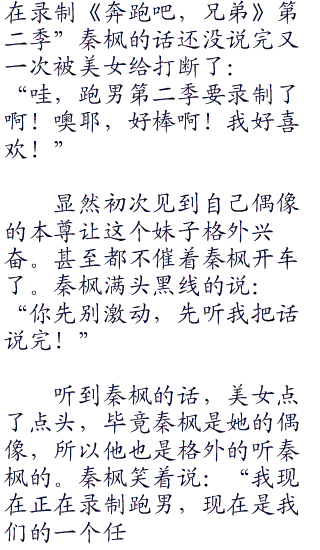 在录制《奔跑吧，兄弟》第
二季”秦枫的话还没说完又
一次被美女给打断了：
“哇，跑男第二季要录制了
啊！噢耶，好棒啊！我好喜
欢！”
显然初次见到自己偶像
的本尊让这个妹子格外兴
奋。甚至都不催着秦枫开车
了。秦枫满头黑线的说：
“你先别激动，先听我把话
说完！”
听到秦枫的话，美女点
了点头，毕竟秦枫是她的偶
像，所以他也是格外的听秦
枫的。秦枫笑着说：“我现
在正在录制跑男，现在是我
们的一个任